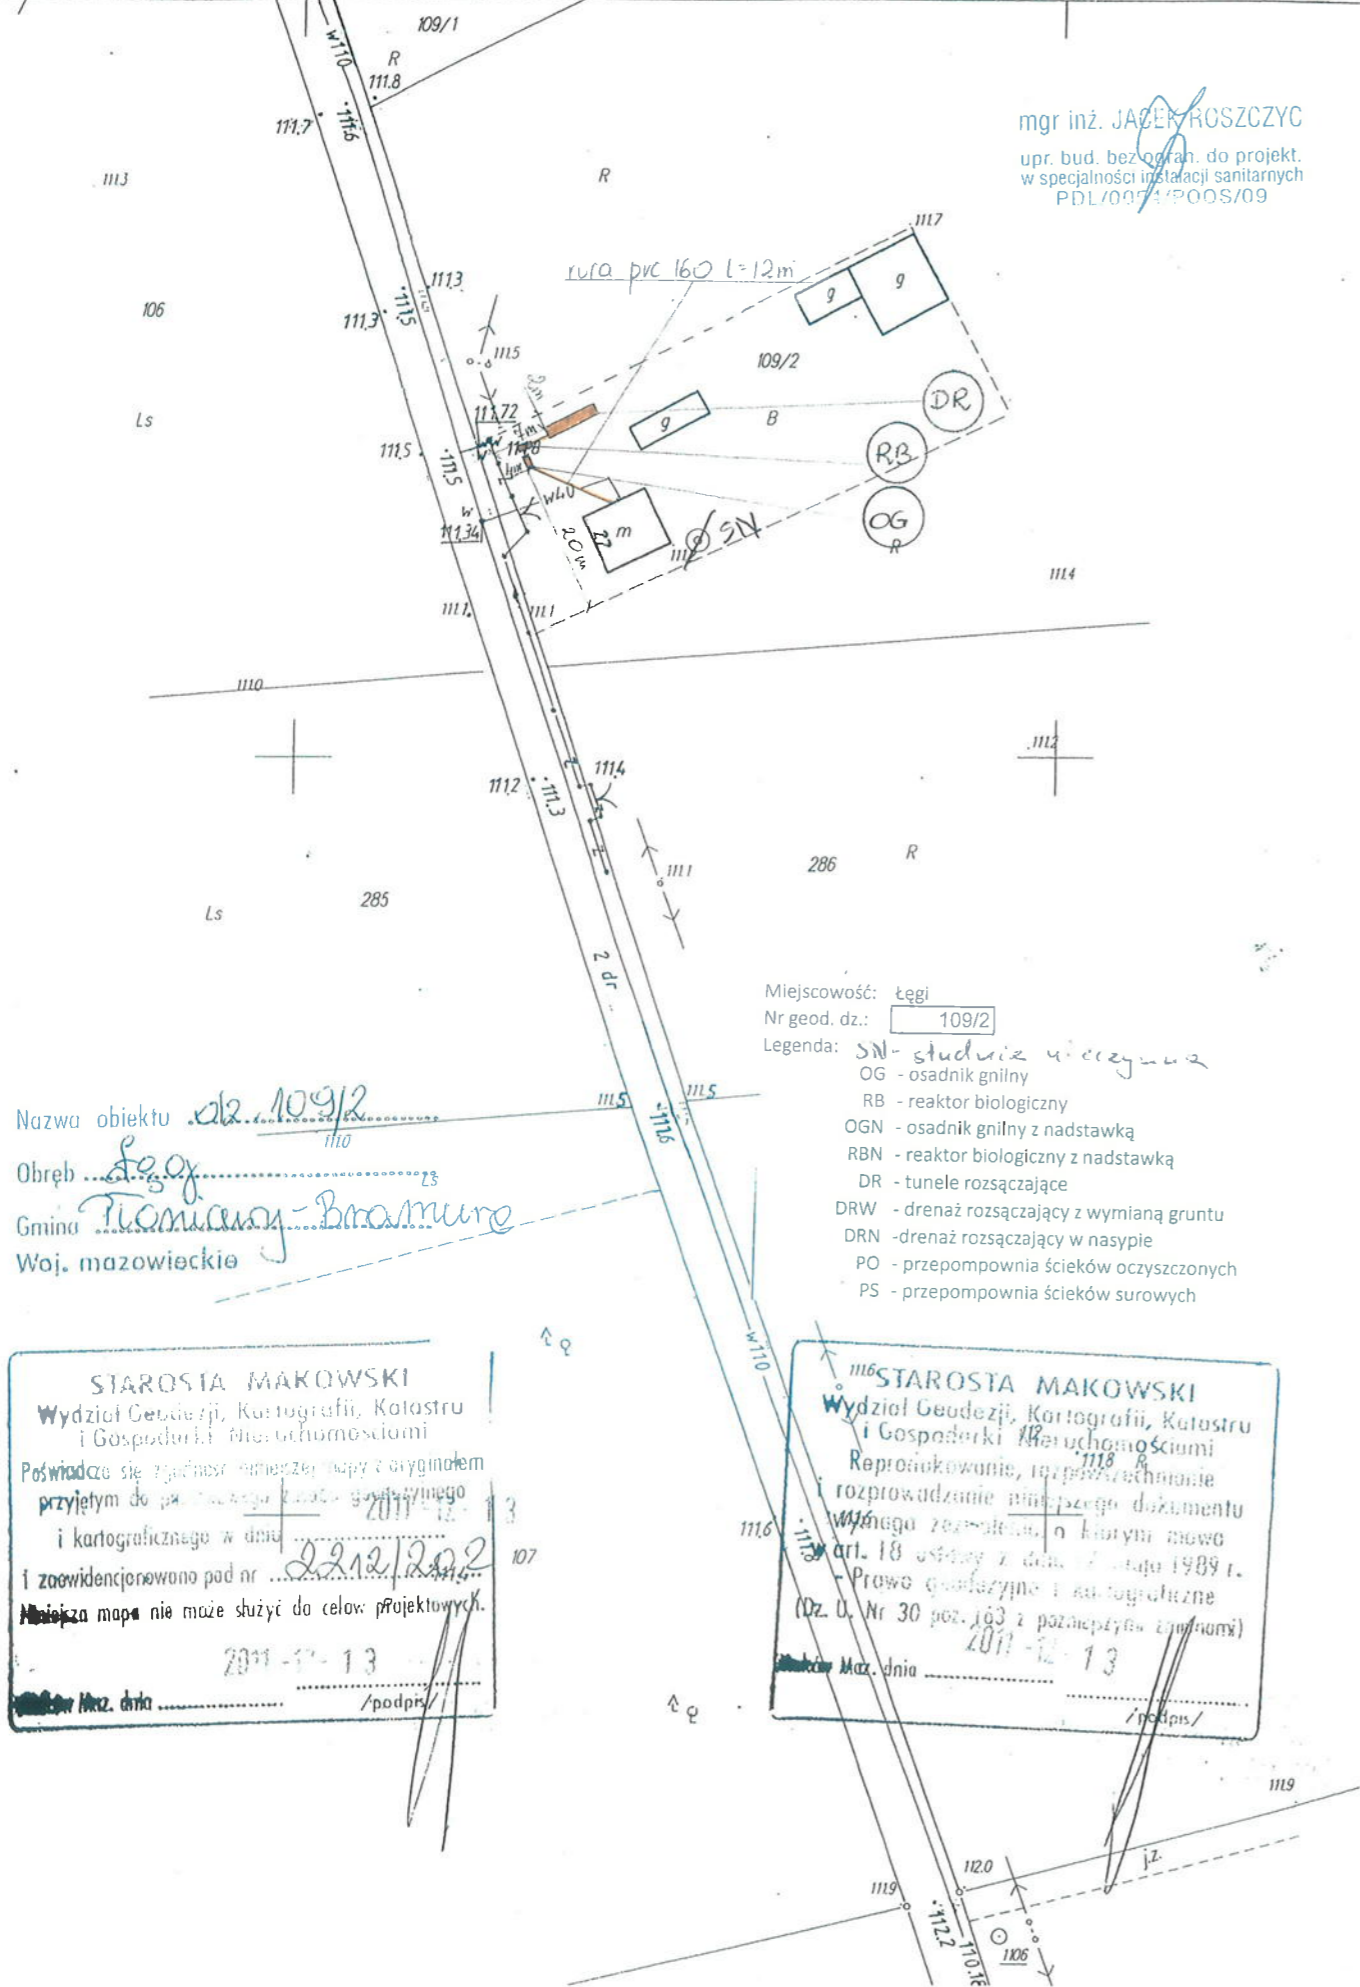 109/1
W110
R
111.8
111.7
111.6
mgr inż. JACEK ROSZCZYC
upr. bud. bez ogran. do projekt.
w specjalności instalacji sanitarnych
PDL/00 /POOS/09
111.3
R
111.7
rura pvc 160 l=12m
g
g
111.3
106
111.3
111.5
111.5
109/2
2m
DR
Ls
111.72
g
B
111.5
111.5
RB
w40
w
OG
111.34
20m
m
SN
R
111.4
111.1
111.1
111.0
111.2
111.4
111.2
111.3
z
111.1
286
R
285
Ls
z
2 dr
Miejscowość: Łęgi
Nr geod. dz.: 109/2
Legenda: SN- studnia nieczynna
OG - osadnik gnilny
RB - reaktor biologiczny
OGN - osadnik gnilny z nadstawką
RBN - reaktor biologiczny z nadstawką
DR - tunele rozsączające
DRW - drenaż rozsączający z wymianą gruntu
DRN -drenaż rozsączający w nasypie
PO - przepompownia ścieków oczyszczonych
PS - przepompownia ścieków surowych
111.5
111.5
111.6
Nazwa obiektu dz. 109/2
111.0
Obręb
Ls
Gmina
Woj. mazowieckie
W110
STAROSTA MAKOWSKI
Wydział Geodezji, Kartografii, Katastru
i Gospodarki Nieruchomościami
Poświadcza się zgodność niniejszej mapy z oryginałem
przyjętym do geodezyjnego
i kartograficznego w dniu 2011-12-13
i zaewidencjonowano pod nr 2212/202
mapa nie może służyć do celów projektowych.
2011-12-13
Maz. dnia
/podpis/
107
111.6
STAROSTA MAKOWSKI
Wydział Geodezji, Kartografii, Katastru
i Gospodarki Nieruchomościami
111.8 R
Reprodukowanie, rozpowszechnianie
i rozprowadzanie niniejszego dokumentu
wymaga zezwolenia, o którym mowa
w art. 18 ustawy z dnia 17 maja 1989 r.
- Prawo geodezyjne i kartograficzne
(Dz. U. Nr 30 poz. 163 z późniejszymi zmianami)
2011-12-13
Maz. dnia
/podpis/
111.6
111.9
j.z.
112.0
111.9
112.2
110.18
110.6